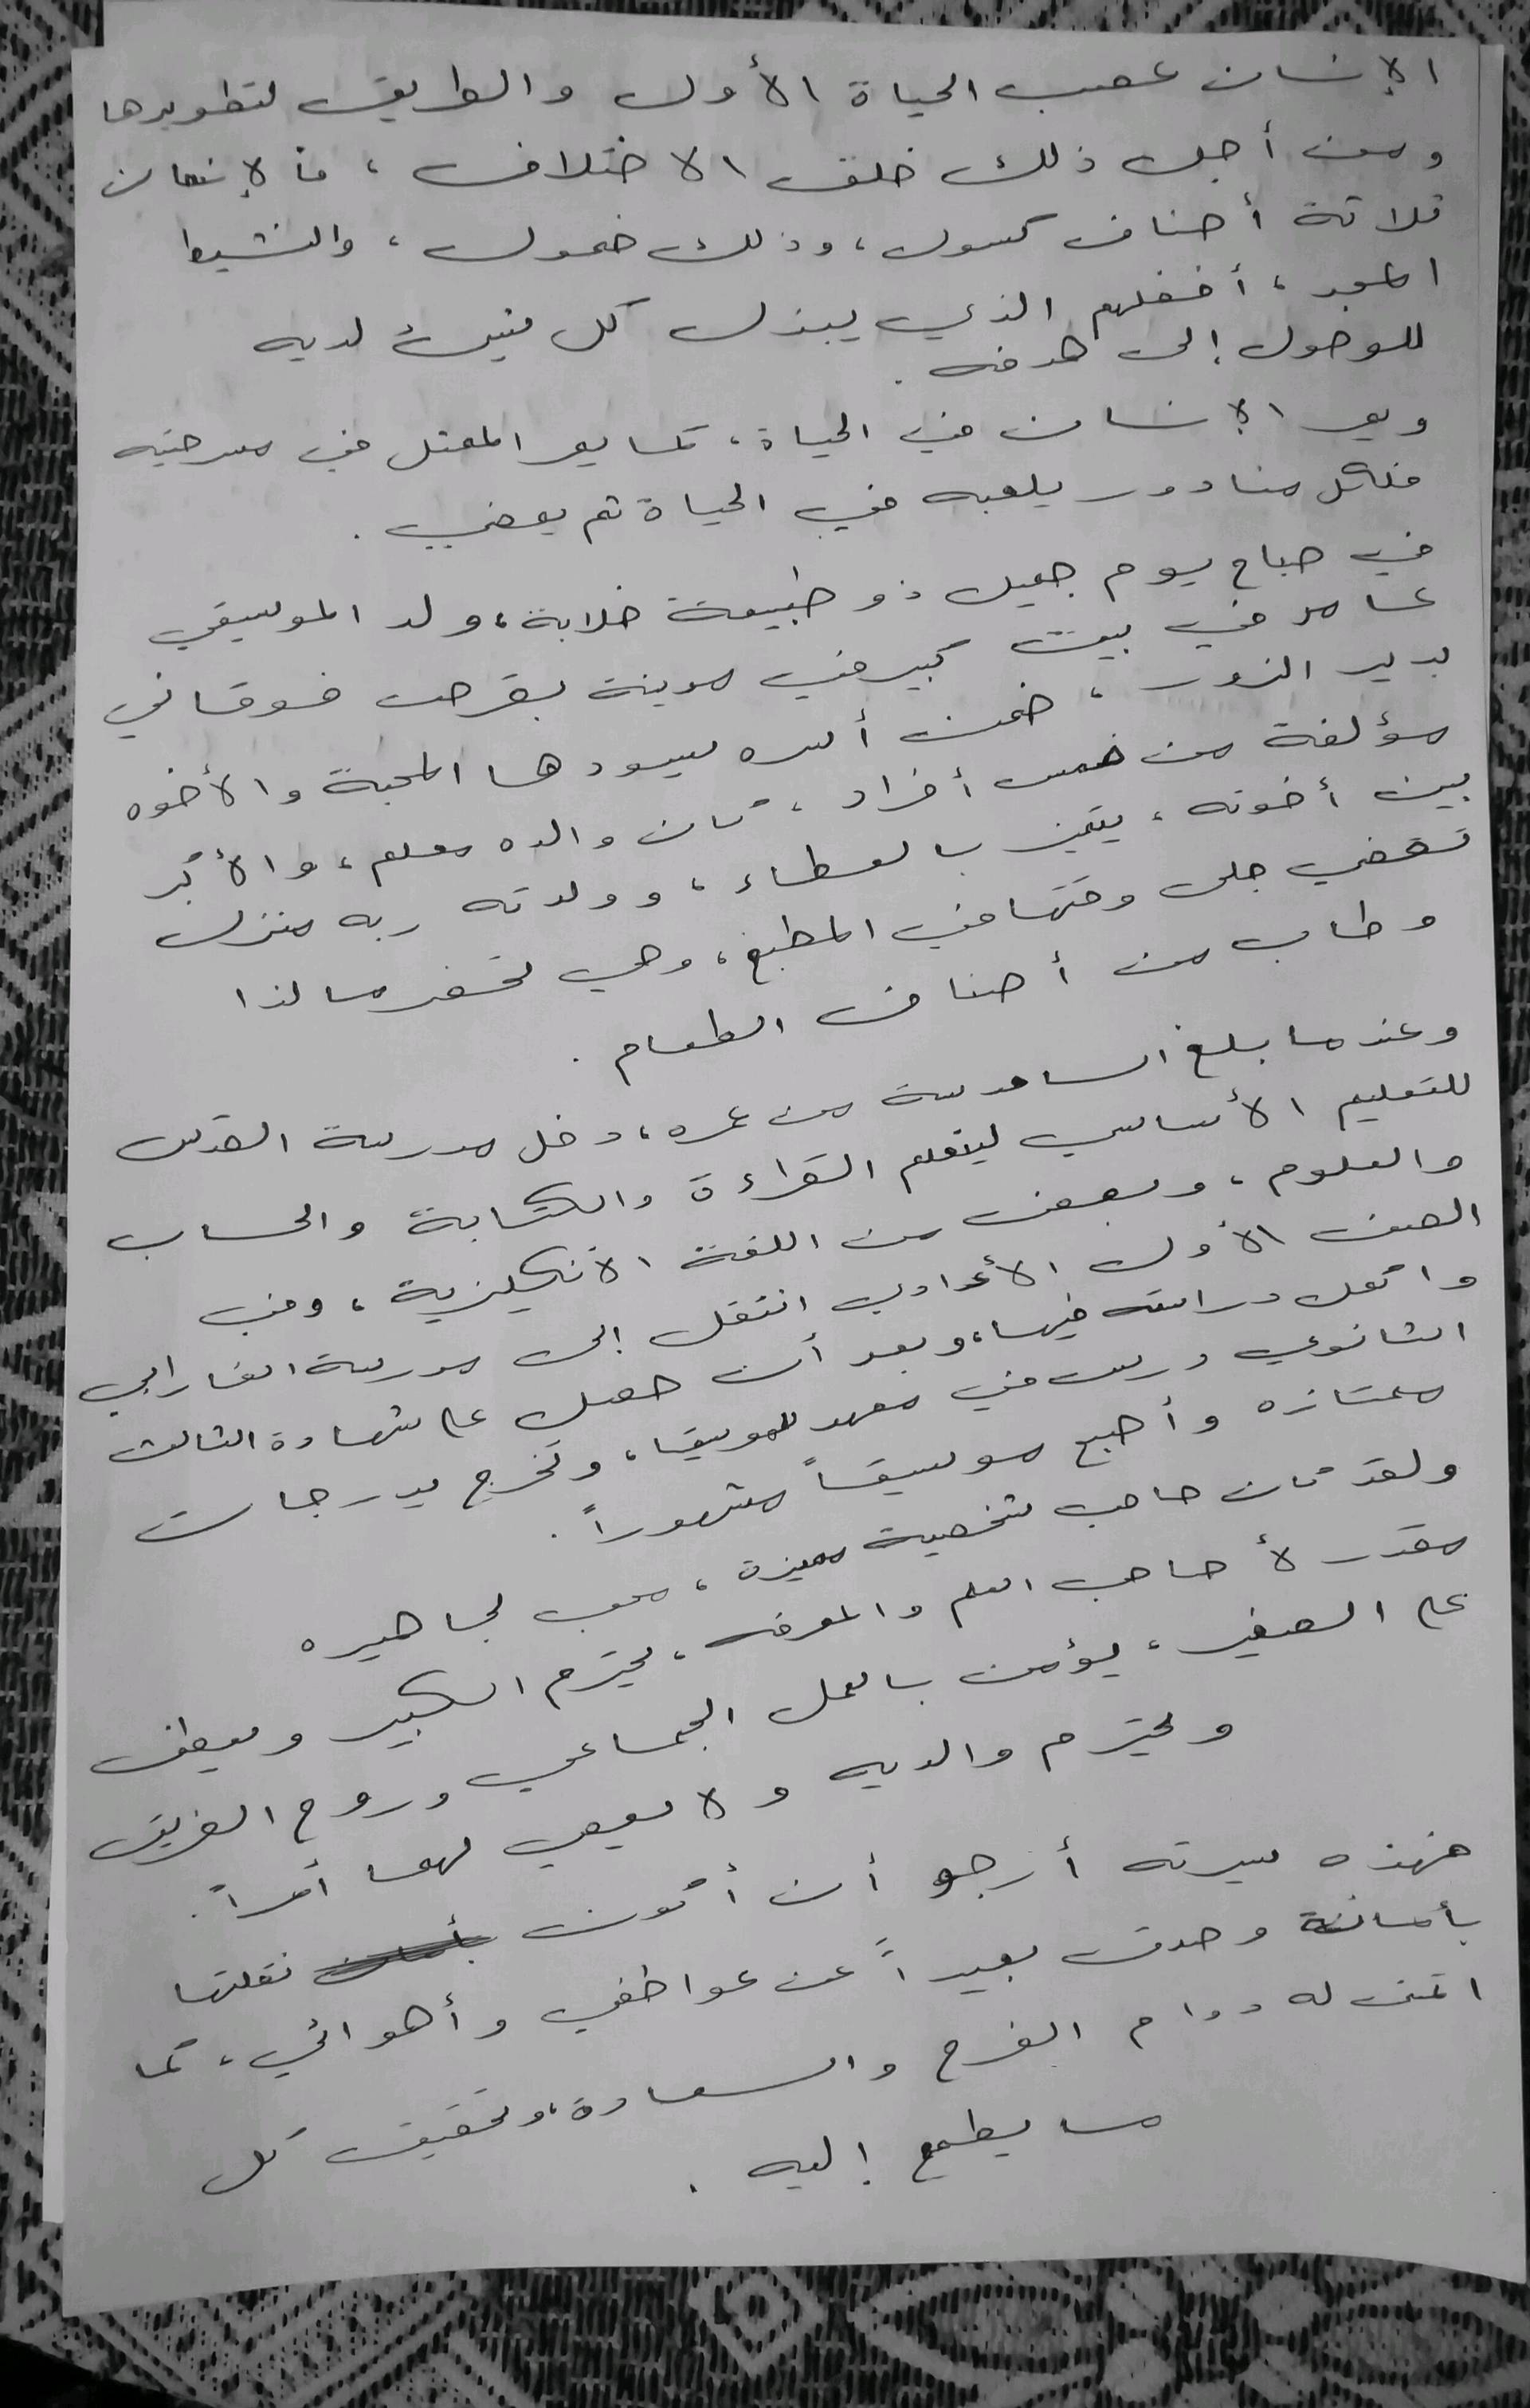 الإنسان عصب الحياة الأول والطريق لتطويرها
ومن أجل ذلك خلق الاختلاف، فالإنسان
ثلاثة أصناف كسول، وذلك خمول، والنشيط
المجد، أفضلهم الذي يبذل كل شيئ لديه
للوصول إلى هدفه.
ويمر الإنسان في الحياة، كما يمر الممثل في مسرحيته
فلكل منا دور يلعبه في الحياة ثم يمضي.
في صباح يوم جميل ذو طبيعة خلابة، ولد الموسيقي
عامر في بيت كبير في مدينة بقرص فوقاني
بدير الزور، ضمن أسره يسودها المحبة والأخوه
مؤلفة من خمس أفراد، كان والده معلم، والأكبر
بين أخوته، يتميز بالعطاء، وولدته ربه منزل
تقضي جلى وقتها في المطبخ، وهي تحضر ما لذا
وطاب من أصناف الطعام.
وعندما بلغ السادسة من عمره، دخل مدرسة القدس
للتعليم الأساسي ليتعلم القراءة والكتابة والحساب
والعلوم، وبعض من اللغة الانكليزية، وفي
الصف الأول الأعدادي انتقل إلى مدرسة الفارابي
واكمل دراسته فيها، وبعد أن حصل على شهادة الثالث
الثانوي درس في معهد للموسيقا، وتخرج بدرجات
ممتازه وأصبح موسيقاً مشهوراً.
ولقد كان صاحب شخصية مميزة، محب لجماهيره
مقدر لأصاحب العلم والمعرفه، يحترم الكبير ويعطف
على الصغير، يؤمن بالعمل الجماعي وروح الفريق
ويحترم والديه ولا يعصي لهما أمراً.
فهذه سيرته أرجو أن أكون نقلتها
بأمانة وصدق بعيداً عن عواطفي وأهوائي، كما
اتمنى له دوام الفرح والسعادة، وتحقيق كل
ما يطمح إليه.